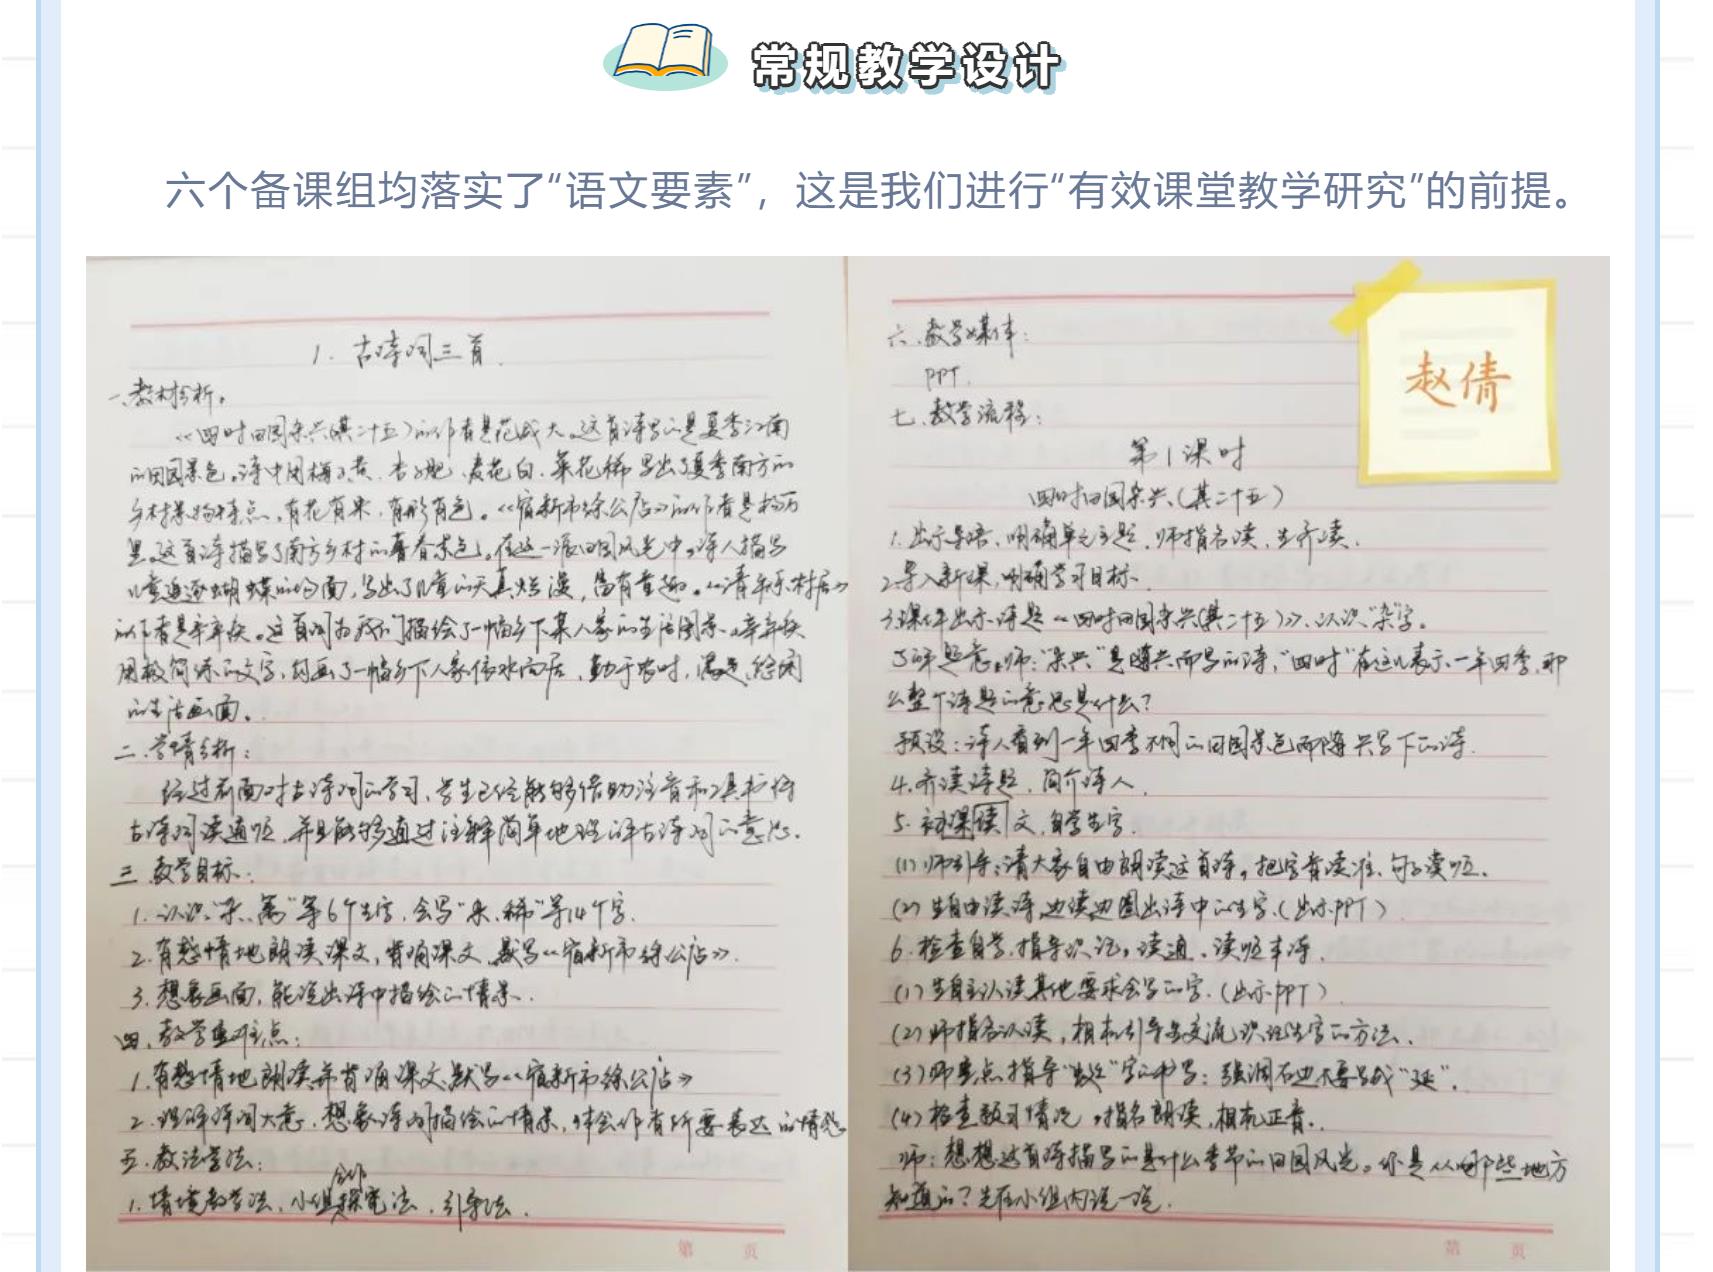 常规教学设计
六个备课组均落实了“语文要素”，这是我们进行“有效课堂教学研究”的前提。
1. 古诗词三首
一、教材分析。
《四时田园杂兴（其二十五）》的作者是范成大。这首诗写的是夏季江南
的田园景色。诗中用梅子黄、杏子肥、麦花白、菜花稀写出了夏季南方的
乡村景物特点，有花有果，有形有色。《宿新市徐公店》的作者是杨万
里。这首诗描写了南方乡村的暮春景色。在这一派田园风光中，诗人描写
儿童追逐蝴蝶的场面，写出了儿童的天真烂漫，富有童趣。《清平乐·村居》
的作者是辛弃疾。这首词为我们描绘了一幅乡下某人家的生活图景。辛弃疾
用极简练的文字，勾画了一幅乡下人家依水而居，勤于农时，满足，悠闲
的生活画面。
二、学情分析：
经过前面对古诗词的学习，学生已经能够借助注音和工具书将
古诗词读通顺，并且能够通过注释简单地理解古诗词的意思。
三、教学目标：
1. 认识“杂、篱”等6个生字，会写“杂、稀”等14个字.
2. 有感情地朗读课文，背诵课文，默写《宿新市徐公店》.
3. 想象画面，能说出诗中描绘的情景.
四、教学重难点：
1. 有感情地朗读并背诵课文，默写《宿新市徐公店》
2. 理解诗词大意，想象诗词描绘的情景，体会作者所要表达的情感
五、教法学法：
1. 情境教学法、小组合作探究法、引导法.
第 页
六、教学媒体：
PPT.
七、教学流程：
赵倩
第1课时
四时田园杂兴（其二十五）
1. 出示导语，明确单元主题，师指名读，生齐读.
2. 导入新课，明确学习目标.
3. 课件出示诗题《四时田园杂兴（其二十五）》，认识“杂”字。
了解题意。师：“杂兴”是随兴而写的诗，“四时”在这儿表示一年四季，那
么整个诗题的意思是什么？
预设：诗人看到一年四季不同的田园景色而随兴写下的诗.
4. 齐读诗题，简介诗人.
5. 初读课文，自学生字.
(1) 师引导：请大家自由朗读这首诗，把字音读准，句子读顺.
(2) 生自由读诗，边读边圈出诗中的生字.（出示PPT）
6. 检查自学，指导识记，读通、读顺本诗.
(1) 生自主认读其他要求会写的字.（出示PPT）
(2) 师指名认读，相机引导学生交流识记生字的方法.
(3) 师重点指导“蜓”字的书写：强调右边不要写成“延”.
(4) 检查预习情况，指名朗读，相机正音.
师：想想这首诗描写的是什么季节的田园风光。你是从哪些地方
知道的？先在小组内说一说.
第 页